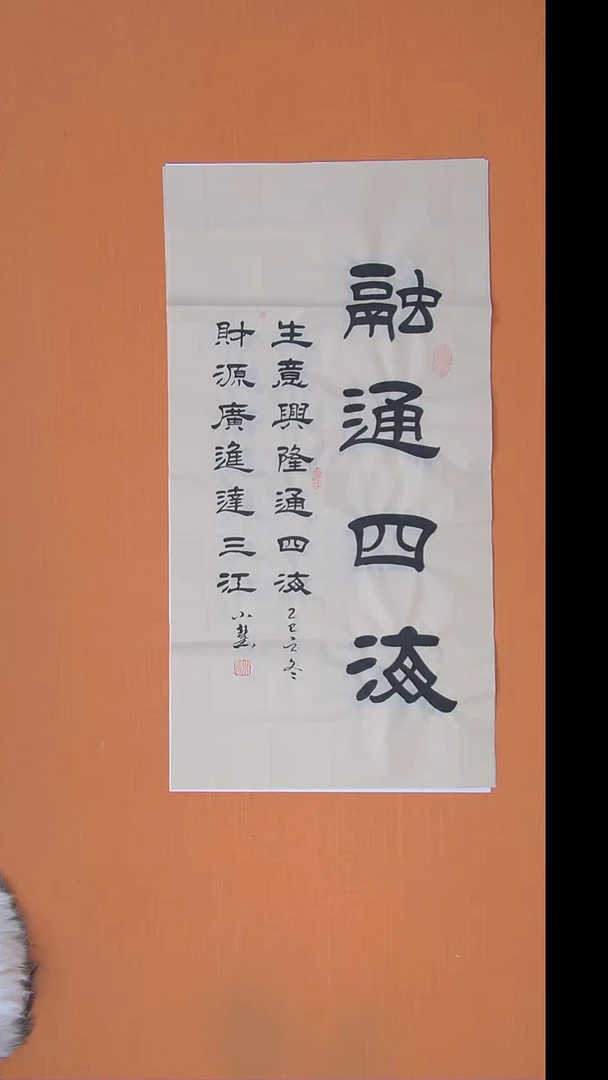 融通四海
生意興隆通四海
乙巳之冬
財源廣進達三江
小慧